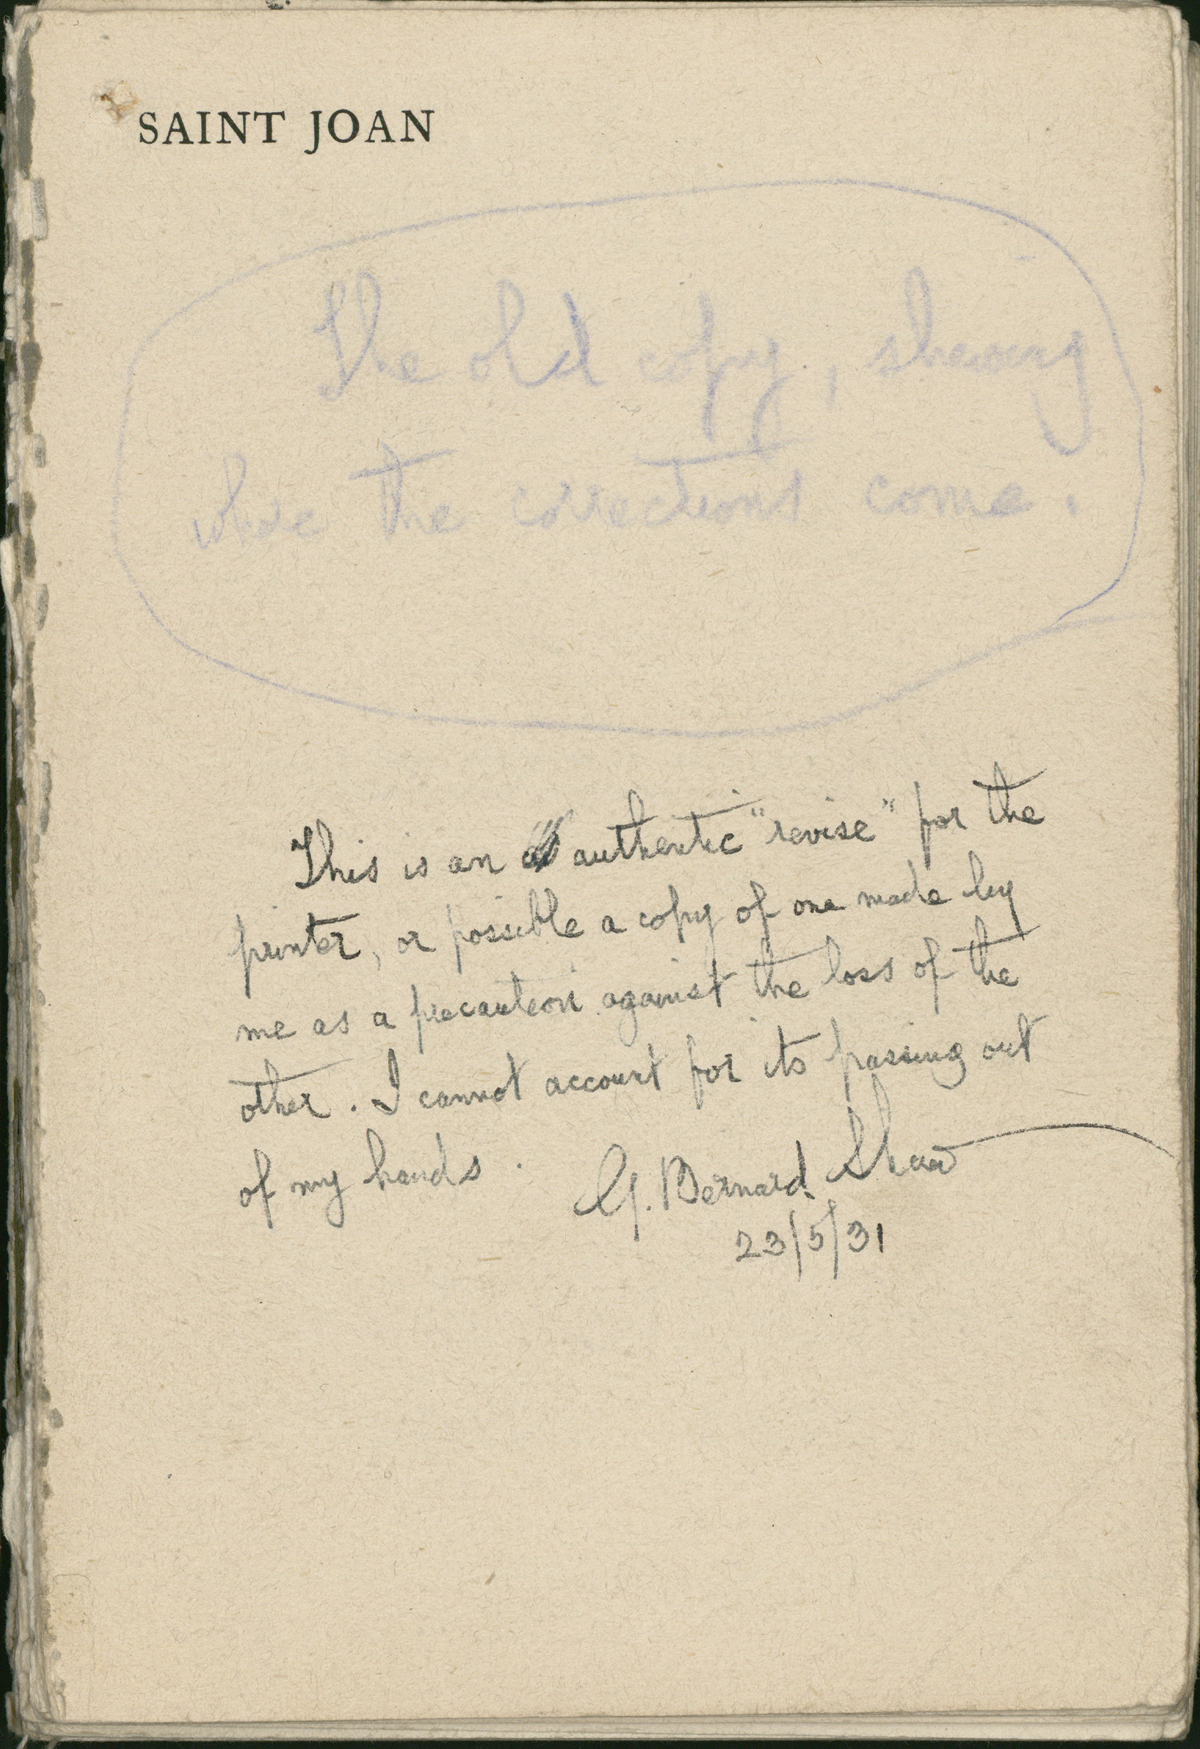 SAINT JOAN
The old copy, shewing
where the corrections come.
This is an authentic "revise" for the
printer, or possible a copy of one made by
me as a precaution against the loss of the
other. I cannot account for its passing out
of my hands.
G. Bernard Shaw
23/5/31